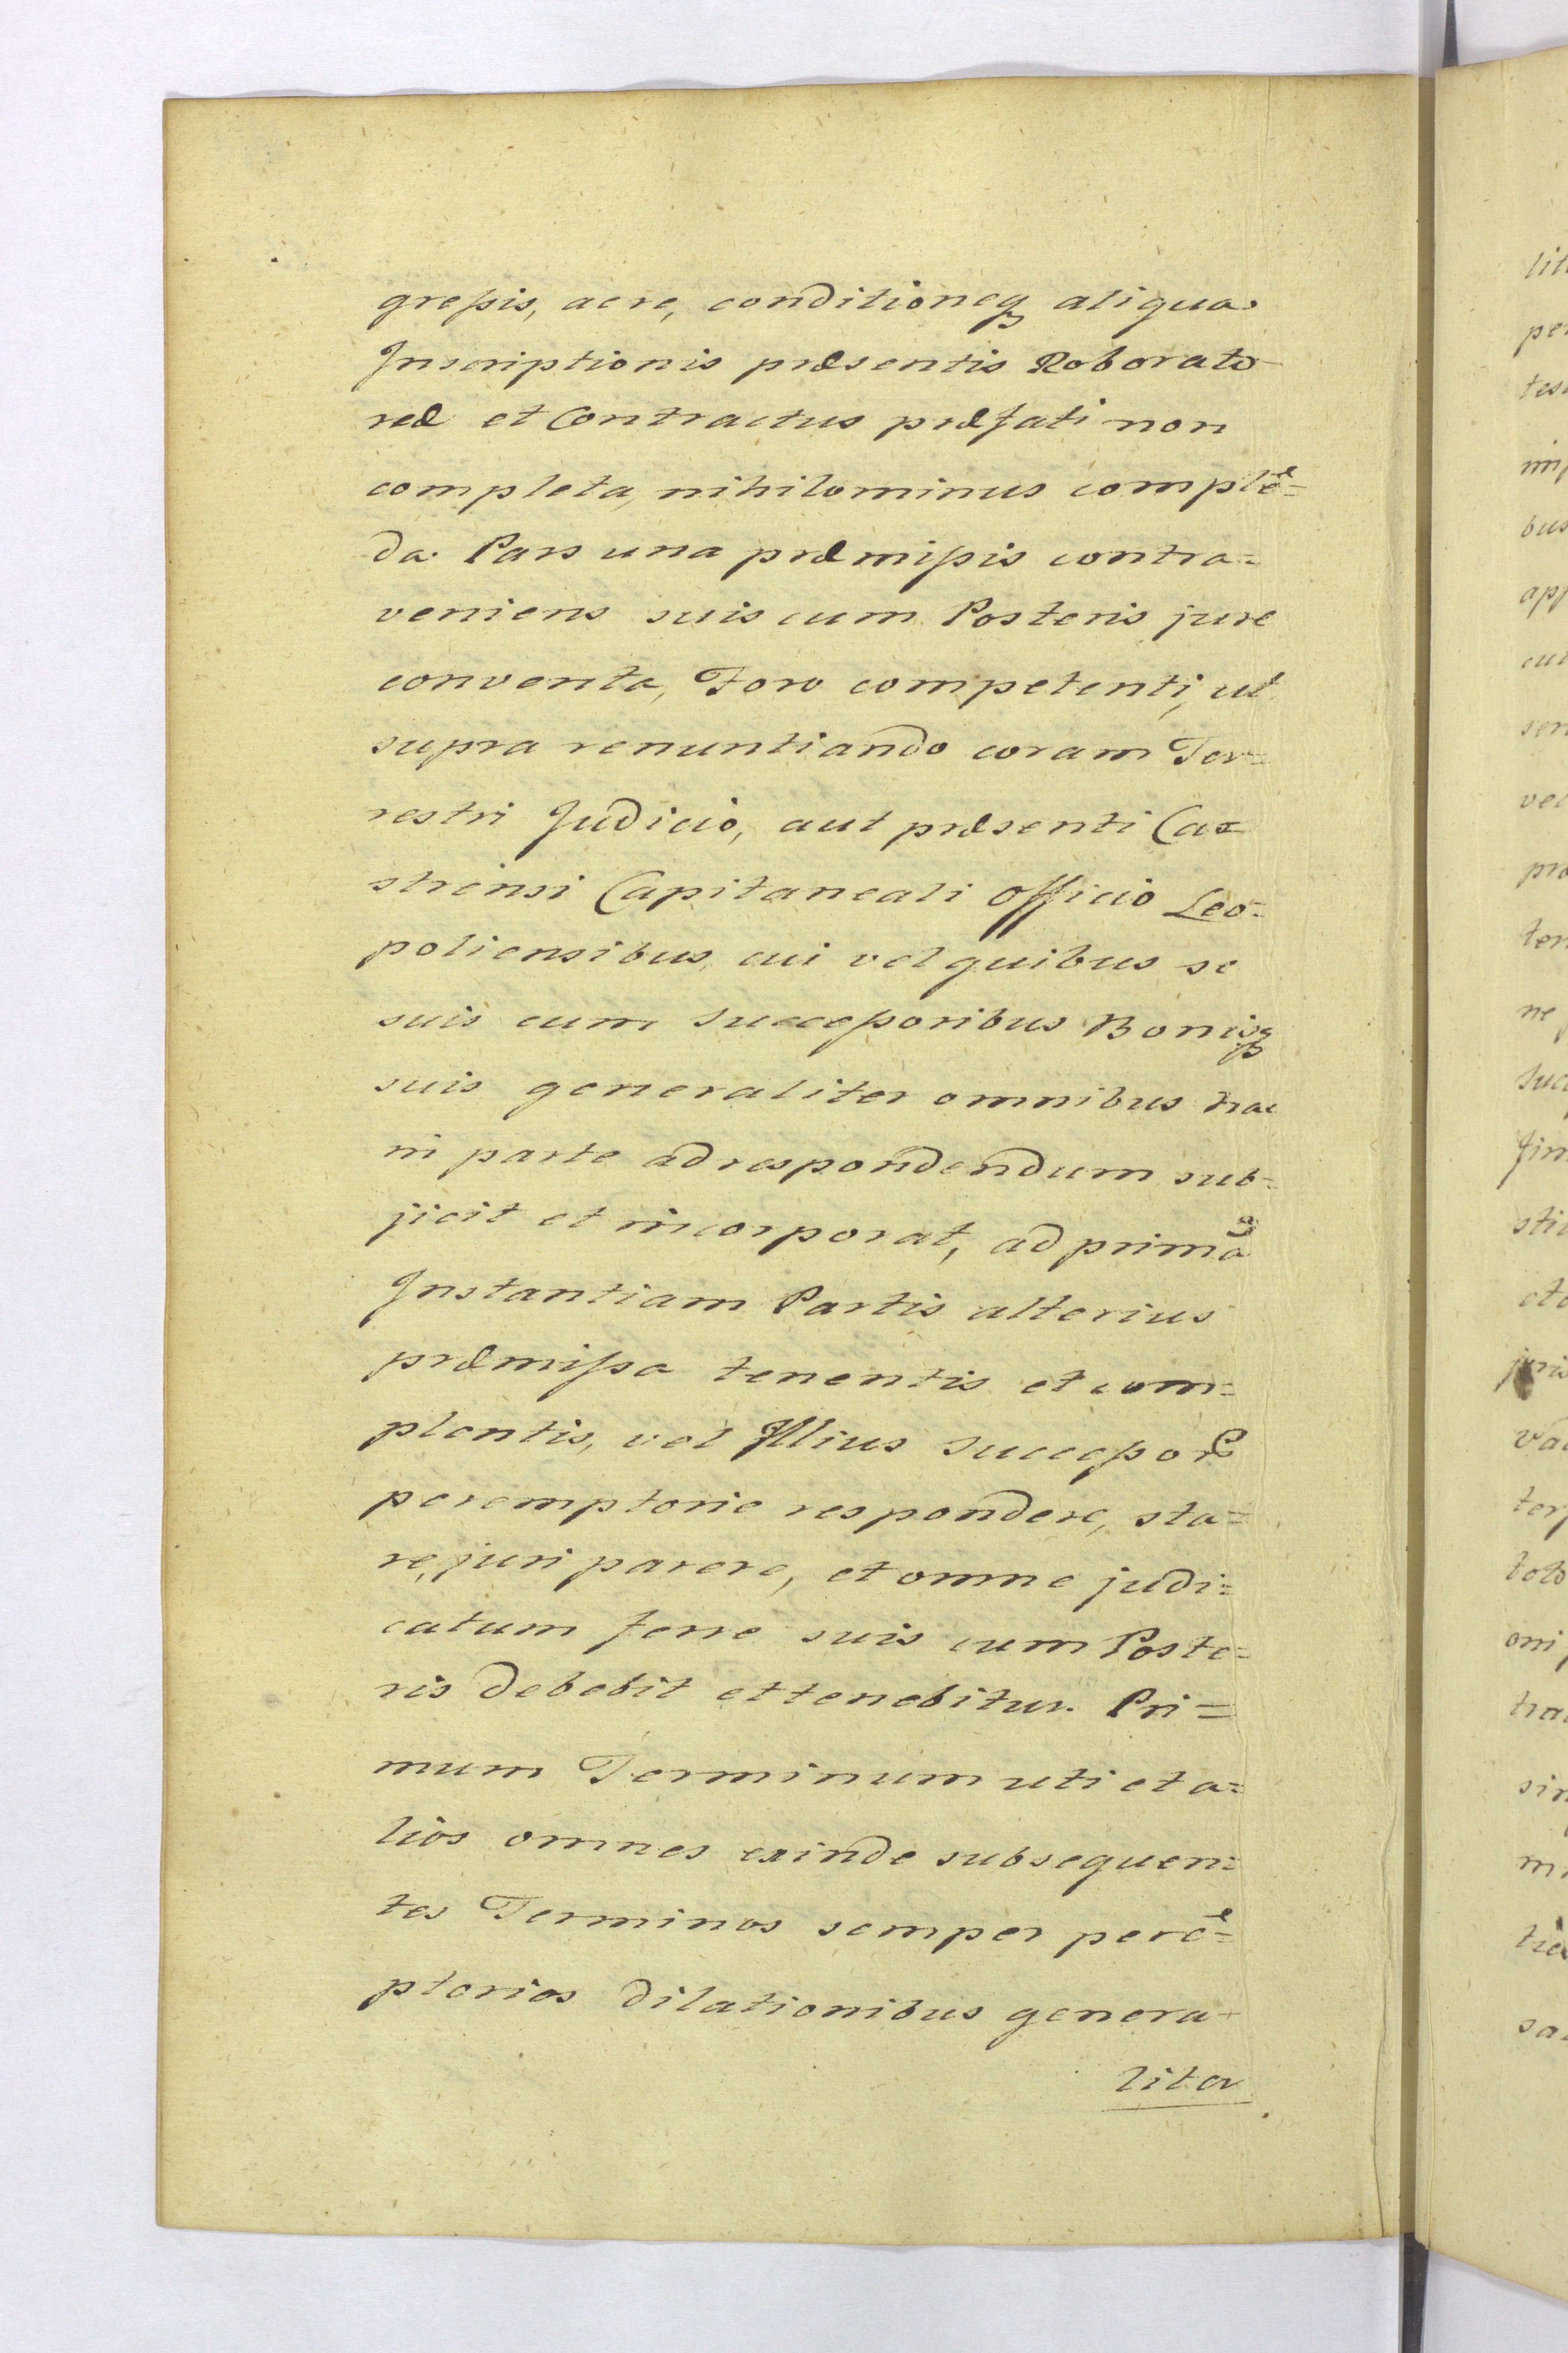 greſsis, aere, conditioneq́ue aliqua
Inscriptionis præsentis Roborato-
reæ et Contractus præfati non
completa, nihilominus complē=
da. Pars una præmiſsis contra=
veniens suis cum Posteris jure
conventa, Foro competenti, ut
supra renuntiando coram Ter=
restri Judicio, aut præsenti Ca=
strensi Capitaneali Officio Leo=
poliensibus, cui vel quibus se
suis cum succeſsoribus Bonisq
suis generaliter omnibus hac
in parte ad respondendum sub=
jicit et incorporat, ad primā
Instantiam Partis alterius
præmiſsa tenentis et com=
plentis, vel Illius succeſsorū
peremptorie respondere, sta=
re, juri parere, et omne judi=
catum ferre suis cum Poste=
ris debebit et tenebitur. Pri=
mum Terminum uti et a=
lios omnes exinde subsequen=
tes Terminos semper perē=
ptorios dilationibus genera-
liter